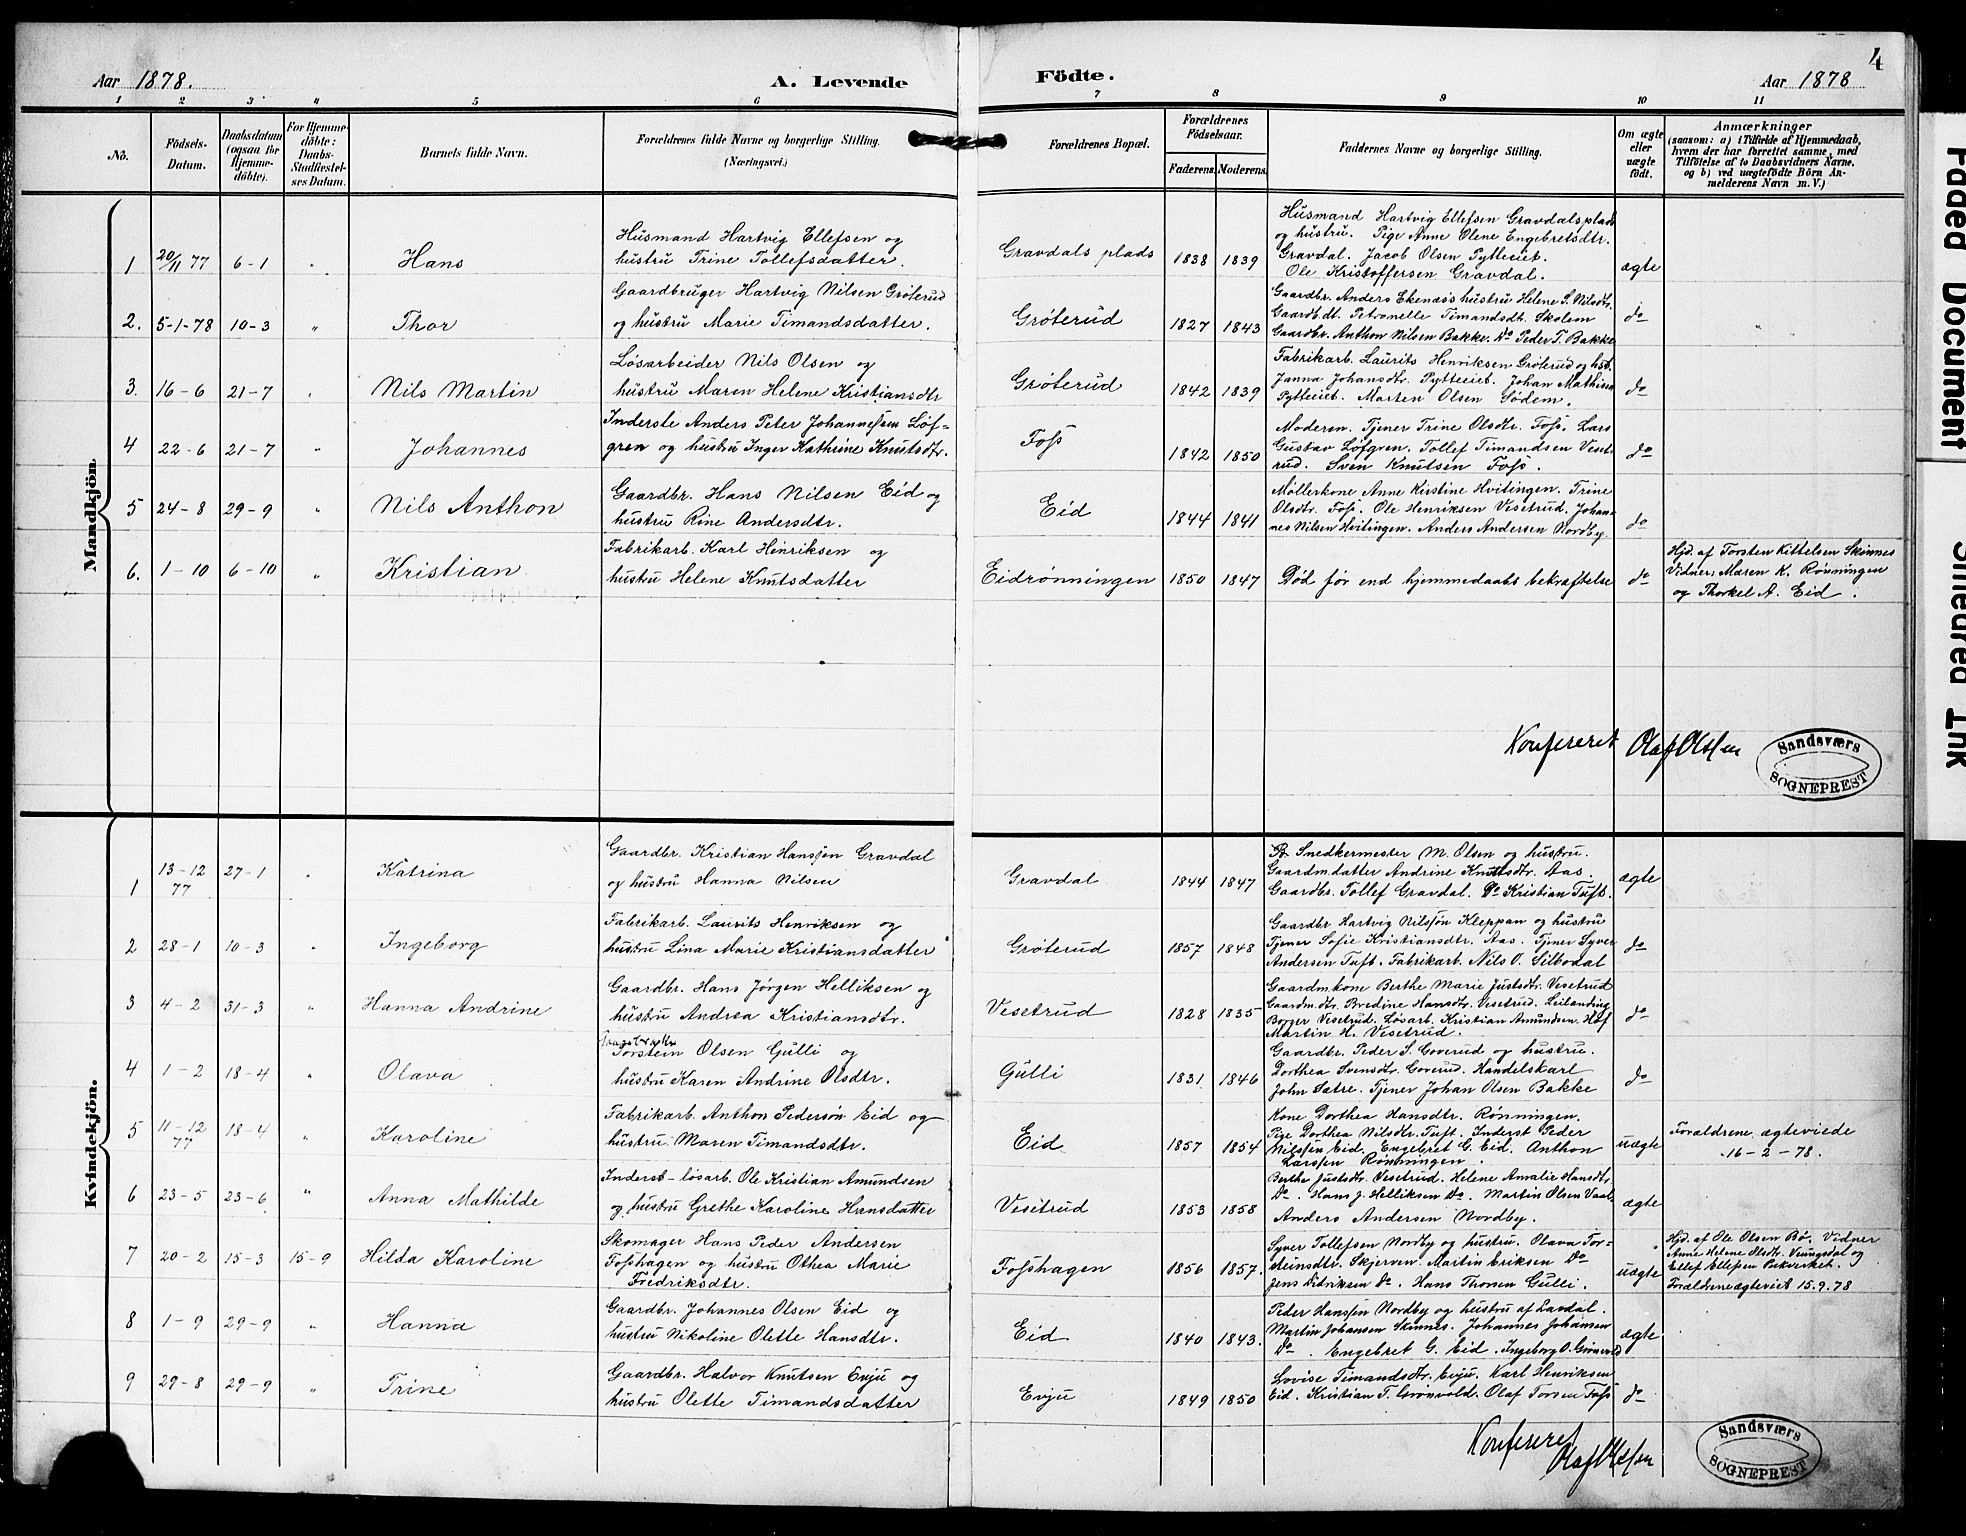 4
Aar 1878. A. Levende Födte. Aar 1878
1 2 3 4 5 6 7 8 9 10 11
No.
Födsels-Datum.
Daabsdatum (ogsaa för Hjemme-döbte).
For Hjemme-döbte: Daabs-Stadfæstel-ses Datum.
Barnets fulde Navn.
Forældrenes fulde Navne og borgerlige Stilling. (Næringsvei.)
Forældrenes Bopæl.
Forældrenes Födselsaar.
Faderens. Moderens.
Faddernes Navne og borgerlige Stilling.
Om ægte eller uægte födt.
Anmærkninger
(saasom: a) i Tilfælde af Hjemmedaab,
hvem der har forrettet samme, med
Tilföielse af to Daabsvidners Navne,
og b) ved uægtefödte Börn An-
melderens Navn m. V.)
Mandkjön.
1 20/11 77 6-1 " Hans
Husmand Hartvig Ellefsen og
hustru Trine Tollefsdatter.
Gravdals plads 1838 1839
Husmand Hartvig Ellefsen Gravdalsplads
og hustru. Pige Anne Olene Engebretsdtr.
Gravdal. Jacob Olsen Pytteeiet.
Ole Kristoffersen Gravdal.
ægte
2. 5-1-78 10-3 " Thor
Gaardbruger Hartvig Nilsen Grøterud
og hustru Marie Timandsdatter.
Grøterud 1827 1843
Gaardbr. Anders Ekenæs's hustru Helene S. Nilsdtr.
Gaardb.dt. Petronelle Timandsdt. Skolem
Gaardbr. Anthon Nilsen Bakke. Do Peder T. Bakke
do
3. 16-6 21-7 " Nils Martin
Løsarbeider Nils Olsen og
hustru Maren Helene Kristiansdtr
Grøterud 1842 1839
Fabrikarb. Laurits Henriksen Grøterud og hst.
Janna Johansdtr. Pytteeiet. Johan Mathisen
Pytteeiet. Marten Olsen Sødem.
do
4 22-6 21-7 " Johannes
Inderste Anders Peter Johannessen Løf-
gren og hustru Inger Kathrine Knutsdtr.
Foss 1842 1850
Moderen. Tjener Trine Olsdtr. Foss. Lars
Gustav Løfgren. Tollef Timandsen Veset-
rud. Sven Knutsen Foss.
do
5 24-8 29-9 " Nils Anthon
Gaardbr. Hans Nilsen Eid og
hustru Rine Andersdtr.
Eid 1844 1841
Møllerkone Anne Kirstine Hvitingen. Trine
Olsdtr. Foss. Ole Henriksen Vesetrud. Johan-
nes Nilsen Hvitingen. Anders Andersen Nordby.
do
6. 1-10 6-10 " Kristian
Fabrikarb. Karl Henriksen og
hustru Helene Knutsdatter
Eidrønningen 1850 1847
Død før end hjemmedaabs bekræftelse
do
Hjd. af Torsten Kittelsen Skinnes
Vidner, Maren K. Rønningen
og Thorkel A. Eid.
Konfereret Olaf Olsen
Sandsværs SOGNEPREST
Kvindekjön.
1 13-12 77 27-1 " Katrina
Gaardbr. Kristian Hanssen Gravdal
og hustru Hanna Nilsen
Gravdal 1844 1847
Snedkermester M. Olsen og hustru.
Gaardm.datter Andrine Knutsdtr. Aas.
Gaardbr. Tollef Gravdal. Do Kristian Tuft.
ægte
2 28-1 10-3 " Ingeborg
Fabrikarb. Laurits Henriksen og
hustru Lina Marie Kristiansdatter
Grøterud 1857 1848
Gaardbr Hartvig Nilssøn Kleppan og hustru
Tjener Sofie Kristiansdtr. Aas. Tjener Syver
Andersen Tuft. Fabrikarb. Nils O. Silbodal
do
3 4-2 31-3 " Hanna Andrine
Gaardbr. Hans Jørgen Helliksen og
hustru Andrea Kristiansdtr.
Vesetrud 1828 1835
Gaardmkone Berthe Marie Justsdtr. Vesetrud
Gaardm.dtr. Bredine Hansdtr. Vesetrud. Leilending
Borger Vesetrud. Løsarb. Kristian Amundsen. Hof
Martin H. Vesetrud.
do
4 1-2 18-4 " Olava
Torstein Olsen Gulli og
hustru Karen Andrine Olsdtr.
Gulli 1831 1846
Gaardbr. Peder S. Goverud og hustru.
Dorthea Svensdtr. Goverud. Handelskarl
John Satre. Tjener Johan Olsen Bakke
do
5 11-12 77 18-4 " Karoline
Fabrikarb. Anthon Pedersøn Eid og
hustru Maren Timandsdtr.
Eid 1857 1854
Kone Dorthea Hansdtr. Rønningen.
Pige Dorthea Nilsdtr. Tuft. Inderst Peder
Nilssen Eid. Engebret G. Eid. Anthon
Larssen Rønningen.
uægte
Forældrene ægteviede
16-2-78.
6 23-5 23-6 " Anna Mathilde
Inderst-løsarb. Ole Kristian Amundsen
og hustru Grethe Karoline Hansdatter
Vesetrud 1853 1858
Berthe Justsdtr. Vesetrud. Helene Amalie Hansdtr.
Do. Hans J. Helliksen Do. Martin Olsen Vaal.
Anders Andersen Nordby.
ægte
7 20-2 15-3 15-9 Hilda Karoline
Skomager Hans Peder Andersen
Fosshagen og hustru Othea Marie
Fredriksdtr.
Fosshagen 1856 1857.
Syver Tollefsen Nordby og hustru. Olava Tor-
steinsdtr. Skjerven. Martin Eriksen Do
Jens Didriksen Do. Hans Thorsen Gulli.
uægte
Hjd. af Ole Olsen Bø. Vidner
Anne Helene Olsdtr. Veungsdal og
Ellef Ellefsen
Forældrene ægteviet 15.9.78
8 1-9 29-9 " Hanna
Gaardbr. Johannes Olsen Eid og
hustru Nikoline Olette Hansdtr.
Eid 1840 1843.
Peder Hanssen Nordby og hustru af Lavdal.
Martin Johansen Skinnes. Johannes Johansen
Do. Engebret G. Eid. Ingeborg O. Grønvold
ægte
9 29-8 29-9 " Trine
Gaardbr. Halvor Knutsen Evju og
hustru Olette Timandsdatter
Evju 1849 1850
Lovise Timandsdtr. Evju. Karl Henriksen
Eid. Kristian T. Grønvold. Olaf Torsen Foss
do
Konfereret
Olaf Olsen
Sandsværs SOGNEPREST
Faded Document
Smeared Ink